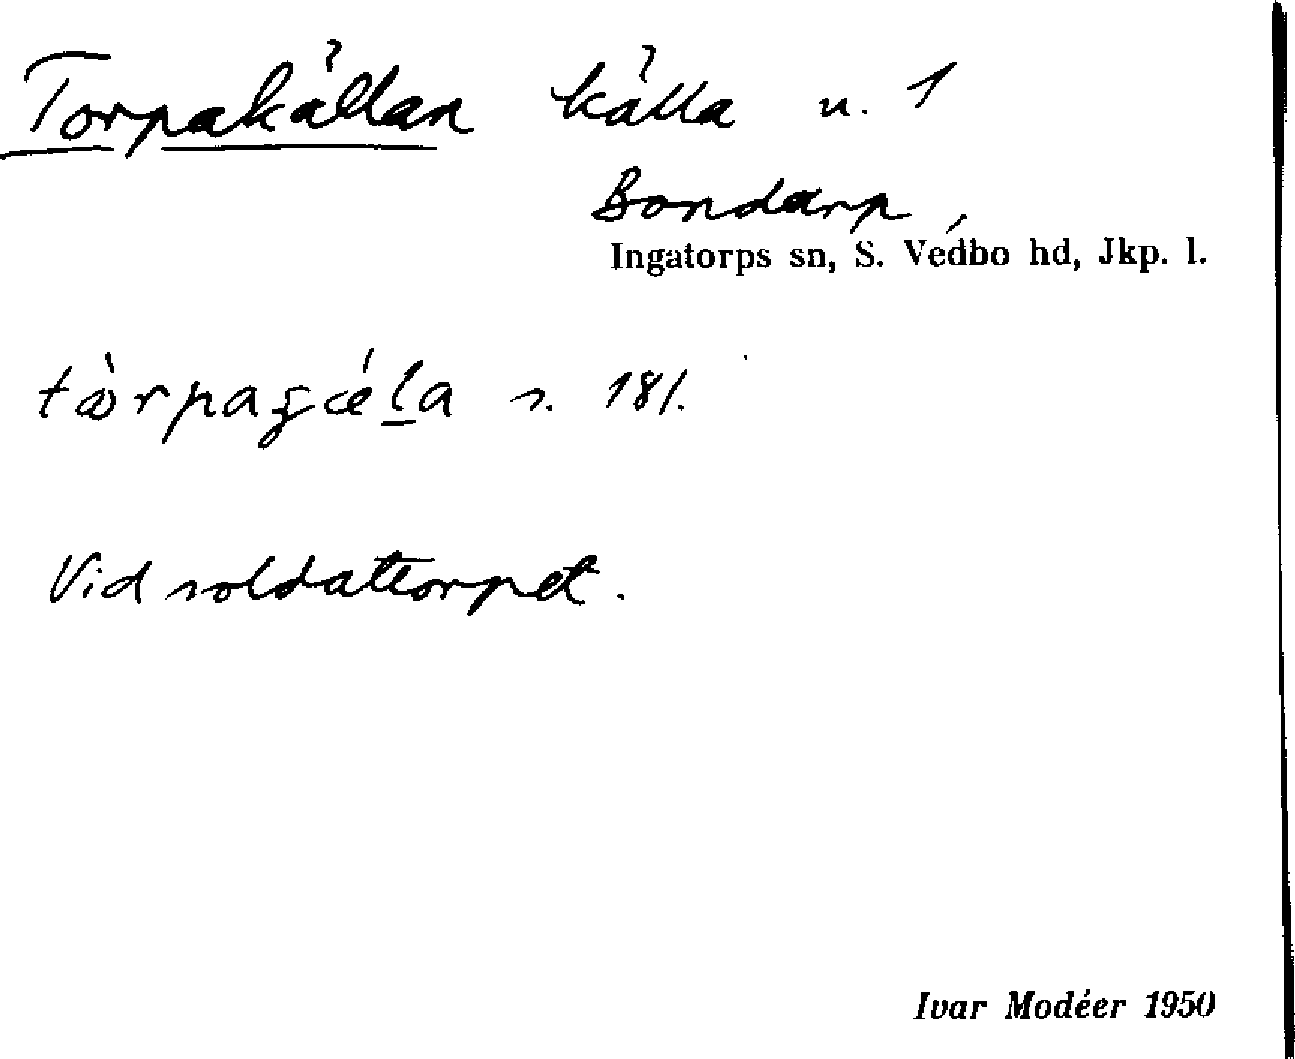 Torpakällan källa n. 1
Bondarp
Ingatorps sn, S. Vedbo hd, Jkp. l.
s. 181.
Vid soldattorpet.
Ivar Modéer 1950